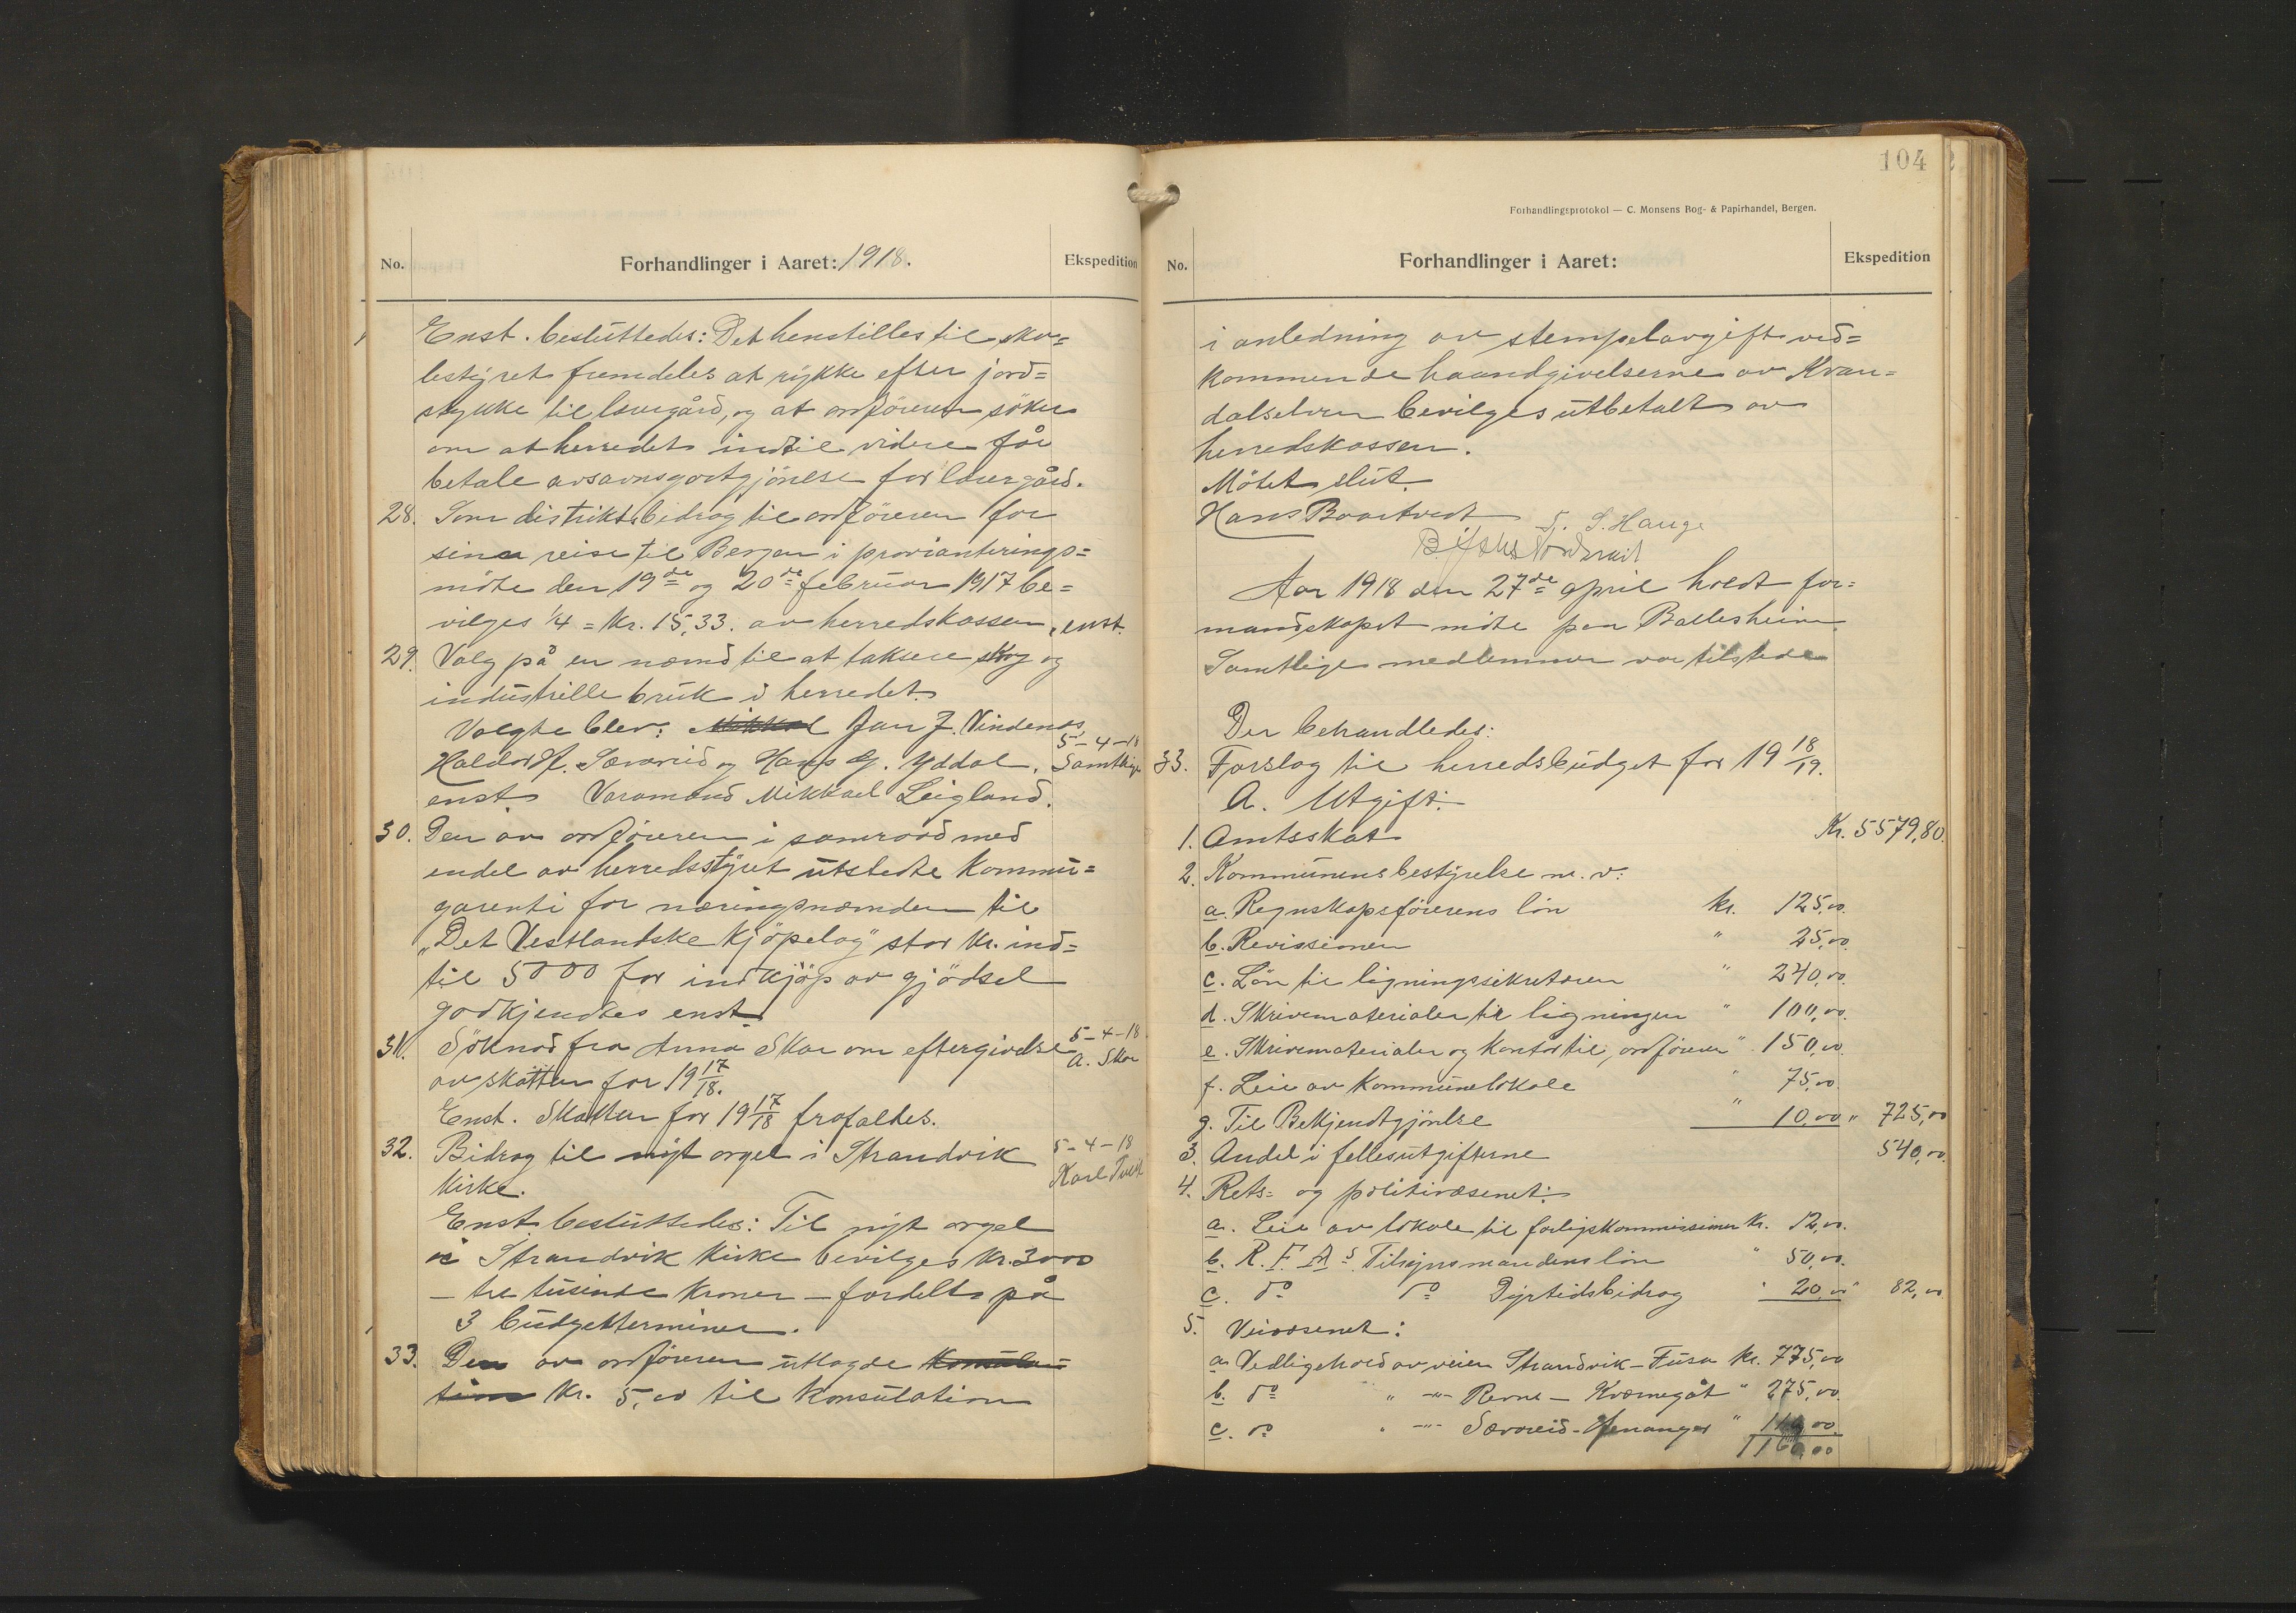 No.
Forhandlinger i Aaret: 1918.
Ekspedition
Enst. besluttedes: Det henstilles til sko=
lestyret fremdeles at rykke efter jord=
stykke til lærergård, og at ordföreren söker
om at herredet indtil videre får
betale avsavnsgodtgjörelse for lærergård.
28. Som distriktsbidrag til ordföreren for
sin reise til Bergen i provianterings=
möte den 19de og 20de februar 1917 be=
vilges 1/4 = Kr. 15,33. av herredskassen, enst.
29. Valg på en nemd til at taksere skog og
industrielle bruk i herredet.
Valgte blev: Mikkal Jan J. Vindenes,
5-4-18
Haldor H. Sævareid og Hans G. Yddal.
Samtlige
enst. Varamand Mikkael Leigland.
30. Den av ordföreren i samraad med
endel av herredsstyret utstedte kommu=
garanti for næringsnemden til
"Det Vestlandske Kjöpelag" stor kr. ind=
til 5000 for indkjöp av gjödsel
godkjendtes enst.
31. Söknad fra Anna Skar om eftergivelse
5-4-18
A. Skar
av skatten for 19 17/18.
Enst. Skatten for 19 17/18 frafaldes.
32. Bidrag til nyt orgel i Strandvik
5-4-18
Kirke.
Karl Tveit
Enst. besluttedes: Til nyt orgel
i Strandvik kirke bevilges kr. 3000
- tre tusinde kroner - fordelt på
3 budgetterminer.
33. Den av ordföreren utlagde konsula=
tion kr. 5,00 til konsulation
104
Forhandlingsprotokol — C. Monsens Bog- & Papirhandel, Bergen.
No.
Forhandlinger i Aaret:
Ekspedition
i anledning av stempelavgift ved=
kommende haandgivelserne av Kvan=
dalselven bevilges utbetalt av
herredskassen.
Mötet slut.
Hans Boortveit
S. Hauge
Nordtveit
Aar 1918 den 27de april holdt for=
mandskapet möte paa Ballesheim.
Samtlige medlemmer var tilstede
Der behandledes:
33. Forslag til herredsbudget for 19 18/19.
A. Utgift:
1. Amtsskat Kr. 5579,80.
2. Kommunens bestyrelse m. v:
a. Regnskapsförerens lön kr. 125,00.
b. Revisionen " 25,00.
c. Lön til ligningssekretæren " 240,00.
d. Skrivematerialer til ligningen " 100,00.
e. Skrivematerialer og kontor til ordförer " 150,00.
f. Leie av kommunelokale " 75,00.
g. Til Bekjendtgjörelse " 10,00 " 725,00
3. Andel i fellesutgifterne 540,00.
4. Rets= og politivæsenet:
a. Leie av lokale til forlikskommissionen Kr. 12,00.
b. R. F. A s Tilsynsmandens lön " 50,00.
c. do do Dyrtidsbidrag " 20,00 " 82,00
5. Veivæsenet:
a. Vedligehold av veien Strandvik - Fusa kr. 775,00
b. do " -"- Revne - Kværnegåt " 275,00.
c. do " -"- Sævareid - Henanger " 110,00.
1160,00